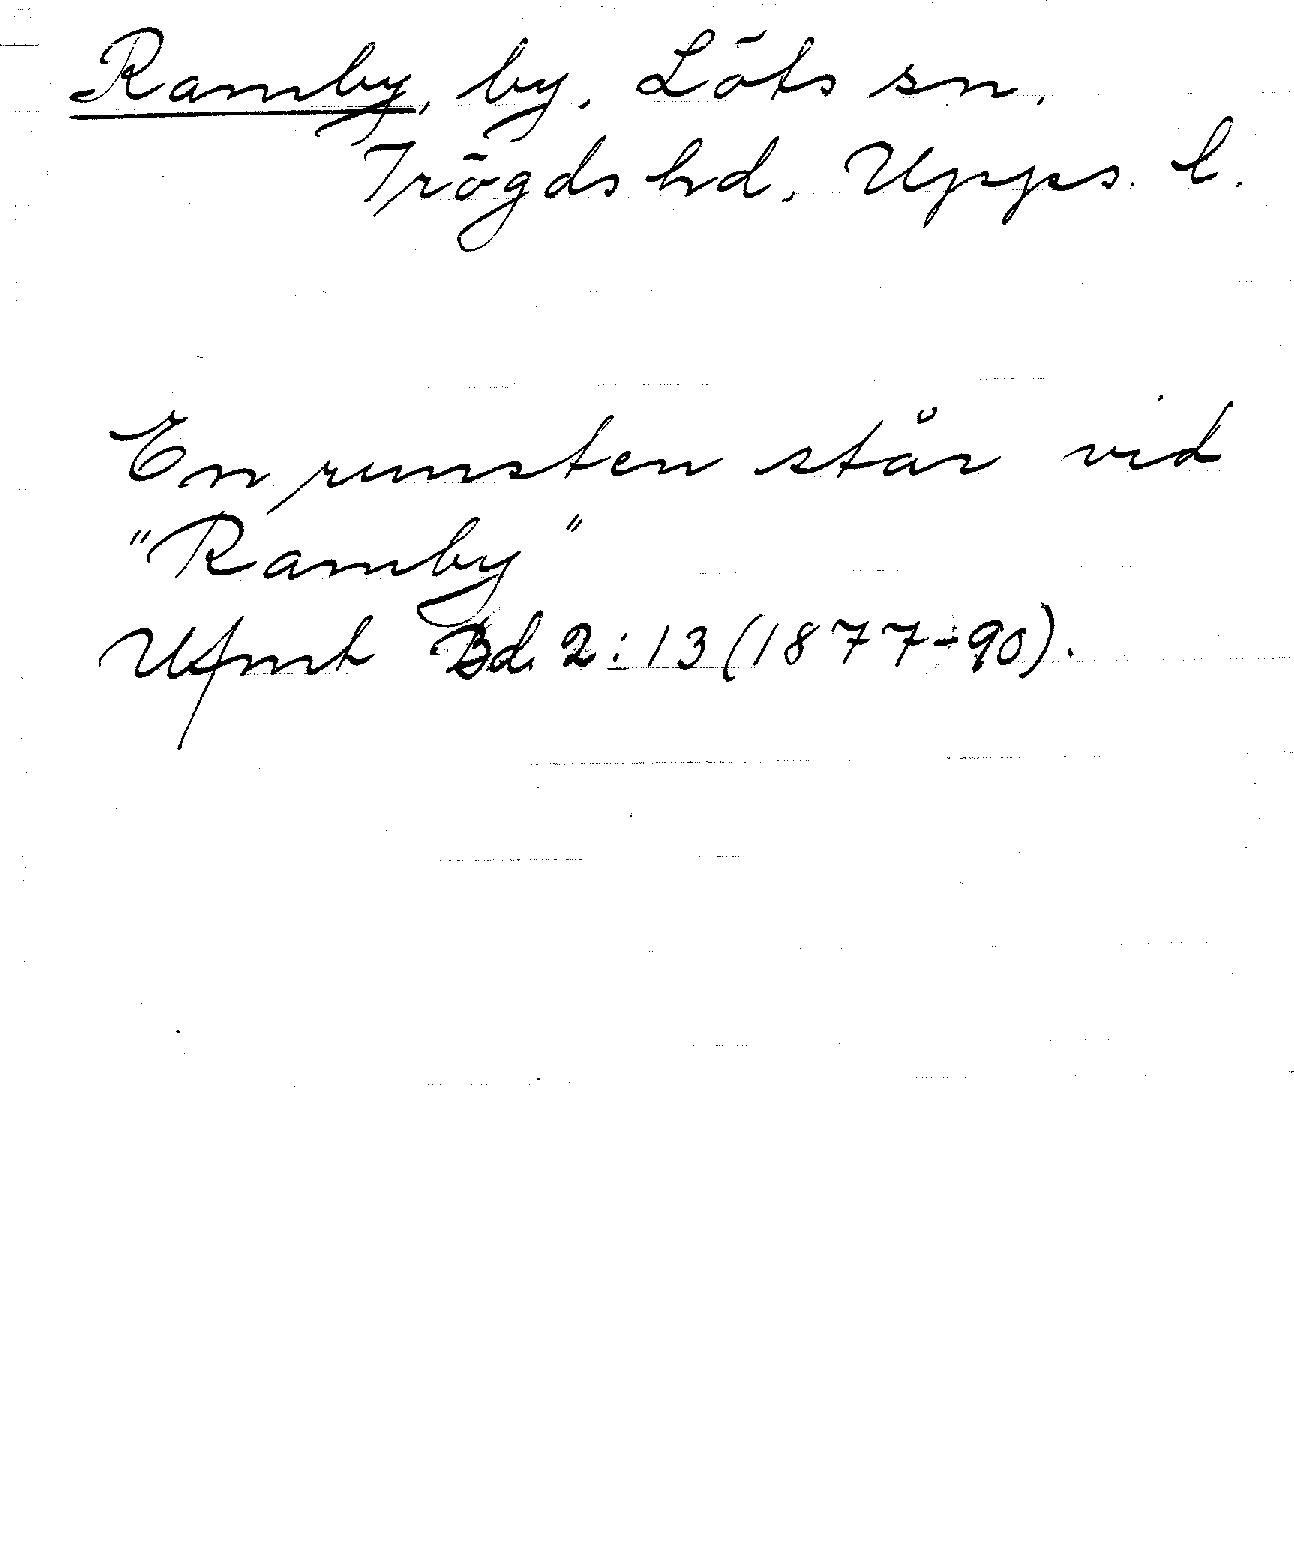 Ramby, by, Löts sn,
Trögds hd, Upps. l.
En runsten står vid
"Ramby"
Ufmt Bd. 2:13 (1877-90).